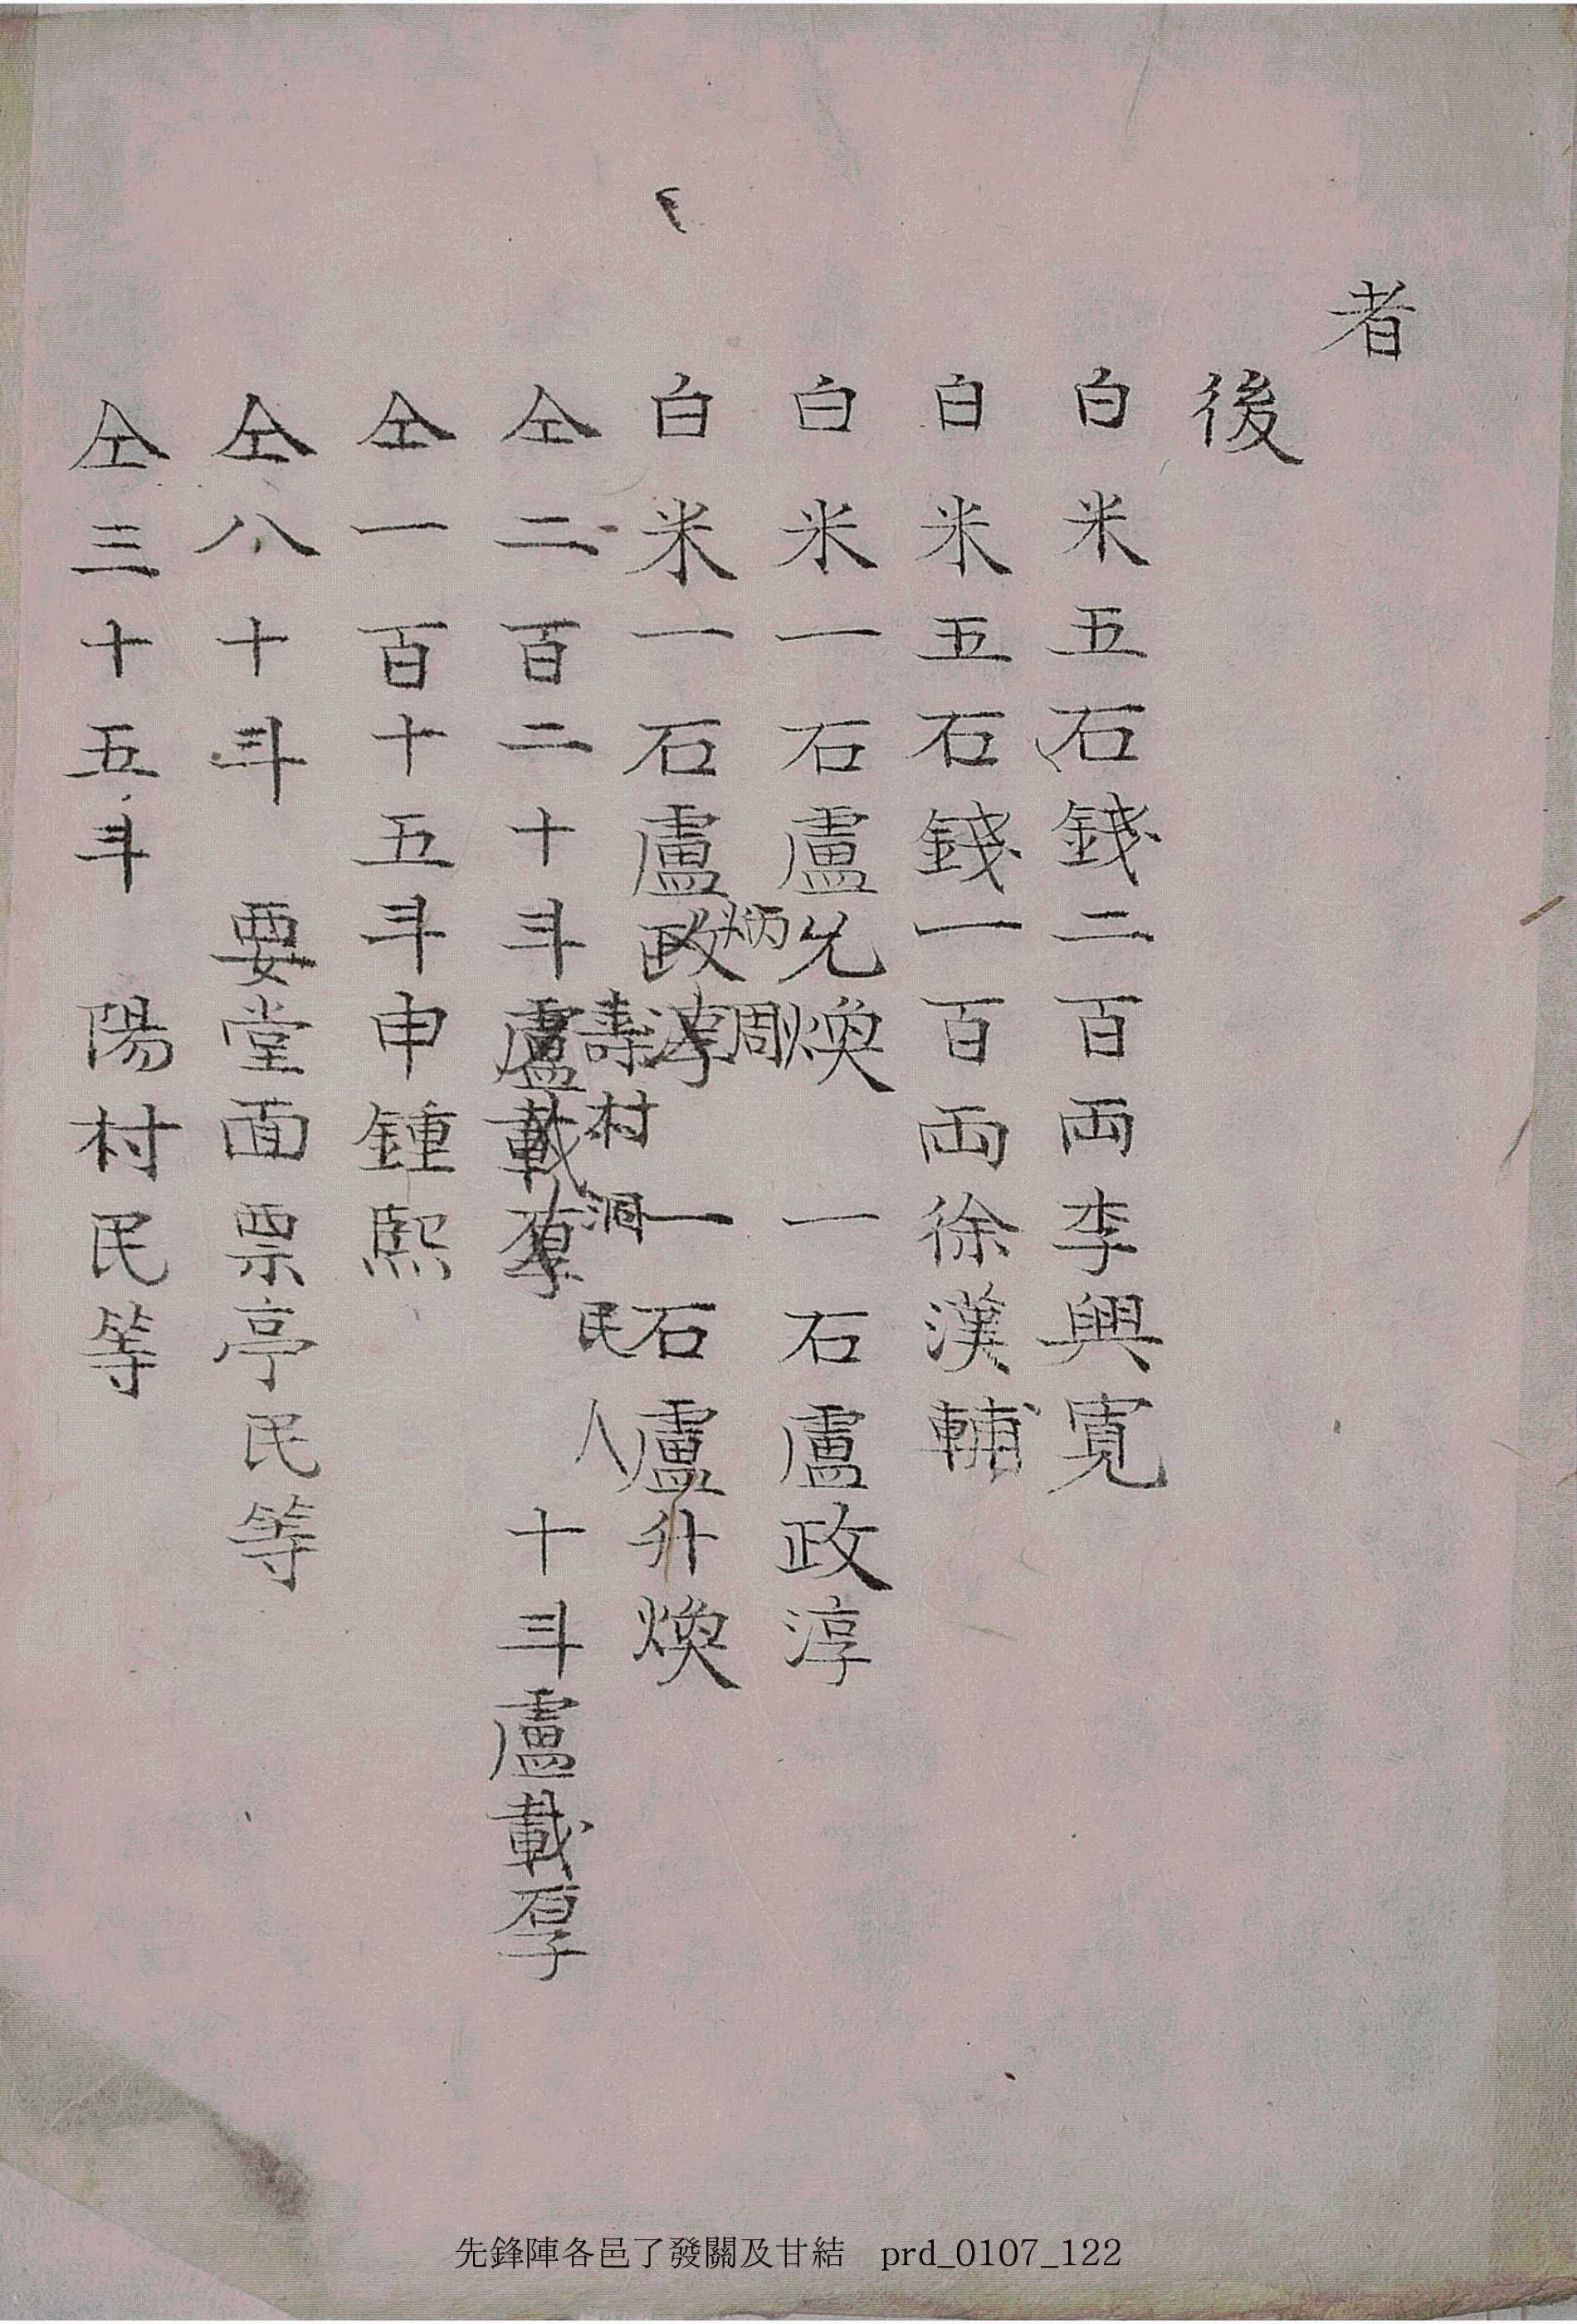 者
後
白米五石錢二百両李興寬
白米五石錢一百両徐漢輔
白米一石盧允煥 一石盧政淳
炳周
白米一石盧政淳 一石盧升煥
壽村洞民人
仝二百二十斗盧載厚 十斗盧載厚
仝一百十五斗申鍾熙
仝八十斗 要堂面票亭民等
仝三十五斗 陽村民等
先鋒陣各邑了發關及甘結 prd_0107_122